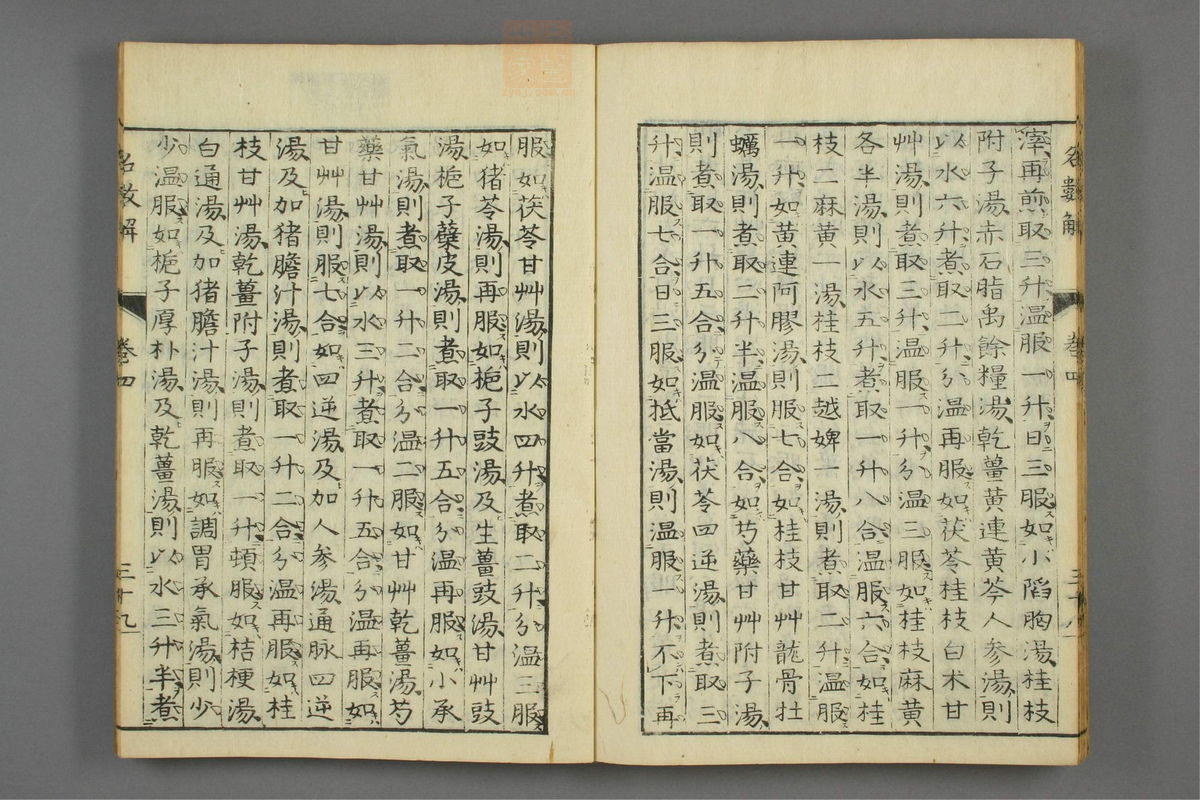 滓再煎取三升温服一升日三服如小陷胸湯桂枝
附子湯赤石脂禹餘糧湯乾薑黄連黄芩人参湯則
以水六升煮取二升分温再服如茯苓桂枝白术甘
艸湯則煮取三升温服一升分温三服如桂枝麻黄
各半湯則以水五升煮取一升八合温服六合如桂
枝二麻黄一湯桂枝二越婢一湯則煮取二升温服
一升如黄連阿膠湯則服七合如桂枝甘艸龍骨牡
蠣湯則煮取二升半温服八合如芍藥甘艸附子湯
則煮取一升五合分温服如茯苓四逆湯則煮取三
升温服七合日三服如抵當湯則温服一升不下再
名數解 卷四
服如茯苓甘艸湯則以水四升煮取二升分温三服
如猪苓湯則再服如梔子豉湯及生薑豉湯甘艸豉
湯梔子蘗皮湯則煮取一升五合分温再服如小承
氣湯則煮取一升二合分温二服如甘艸乾薑湯芍
藥甘艸湯則以水三升煮取一升五合分温再服如
甘艸湯則服七合如四逆湯及加人参湯通脉四逆
湯及加猪膽汁湯則煮取一升二合分温再服如桂
枝甘艸湯乾薑附子湯則煮取一升頓服如桔梗湯
白通湯及加猪膽汁湯則再服如調胃承氣湯則少
少温服如梔子厚朴湯及乾薑湯則以水三升半煮
名數解 卷四 三十九